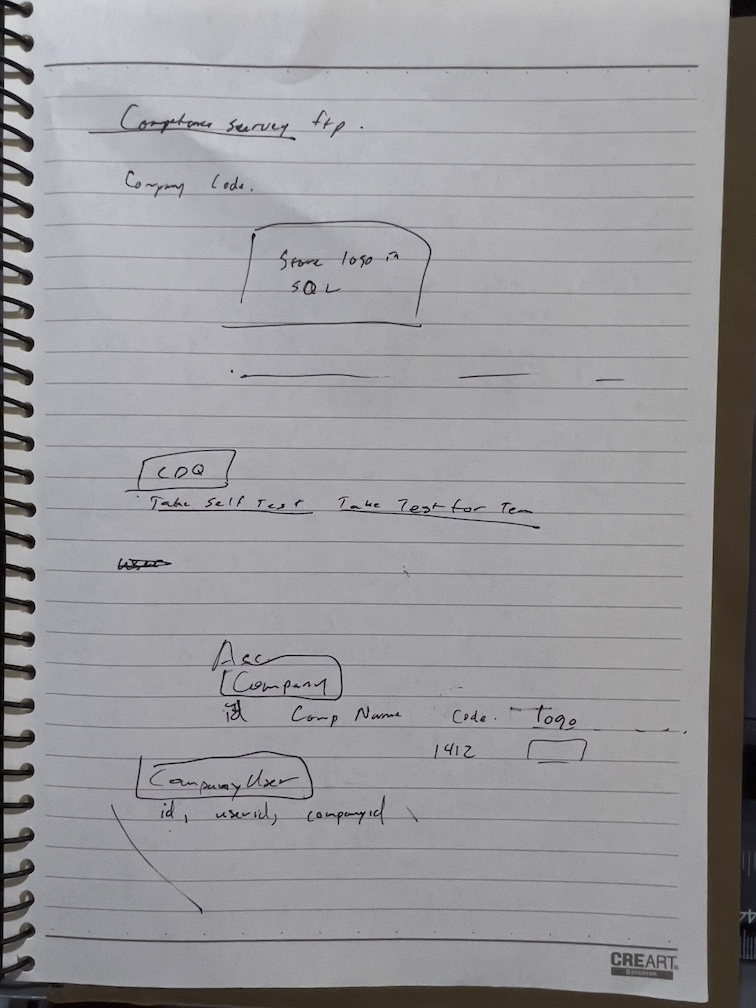 Compliance survey ftp.
Company Code.
Store logo in
SQL
CDQ
Take Self Test Take Test for Team
user
Acc
Company
id Comp Name Code. logo
1412
CompanyUser
id, userid, companyid
CREART